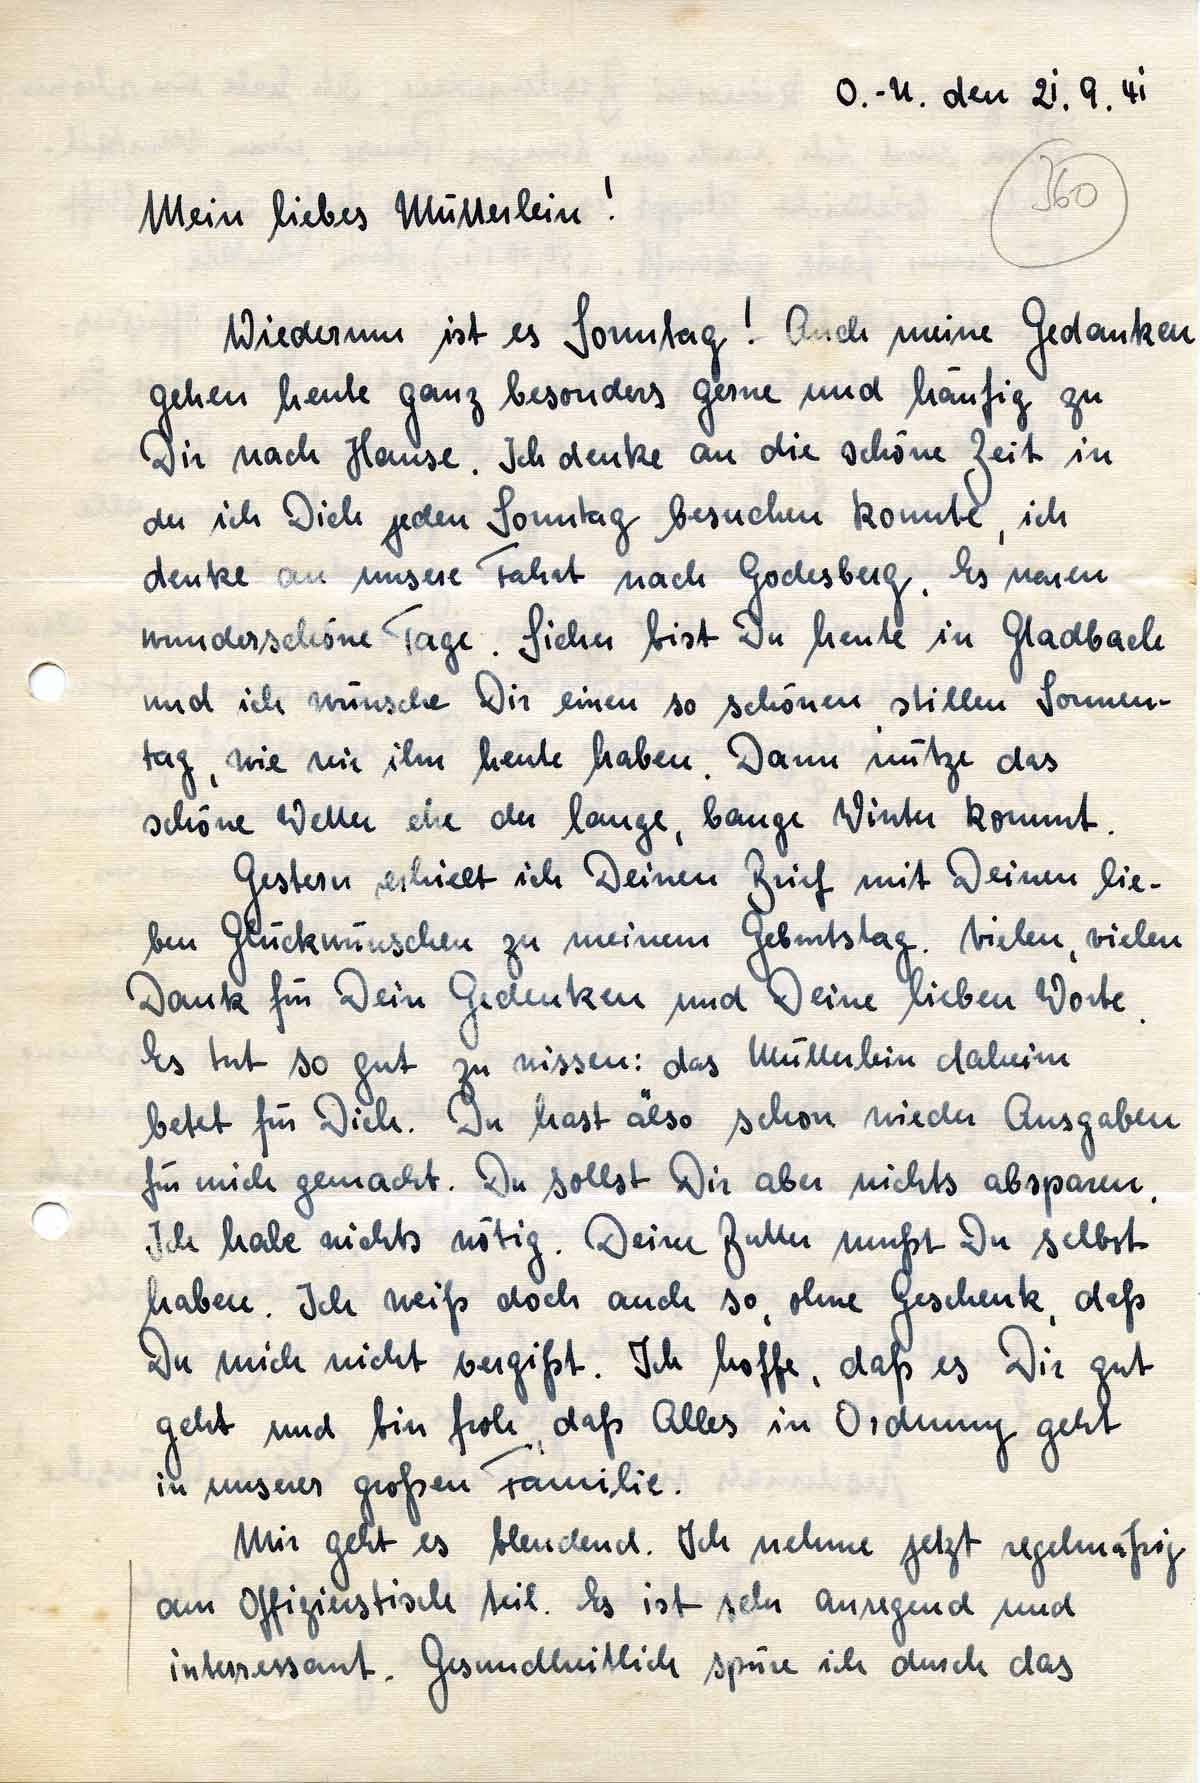 O.-U. den 21. 9. 41
360
Mein liebes Mütterlein!
Wiederum ist es Sonntag! Auch meine Gedanken
gehen heute ganz besonders gerne und häufig zu
Dir nach Hause. Ich denke an die schöne Zeit in
der ich Dich jeden Sonntag besuchen konnte, ich
denke an unsere Fahrt nach Godesberg. Es waren
wunderschöne Tage. Sicher bist Du heute in Gladbach
und ich wünsche Dir einen so schönen, stillen Sonnen-
tag, wie wir ihn heute haben. Dann nütze das
schöne Wetter ehe der lange, bange Winter kommt.
Gestern erhielt ich Deinen Brief mit Deinen lie-
ben Glückwünschen zu meinem Geburtstag. Vielen, vielen
Dank für Dein Gedenken und Deine lieben Worte.
Es tut so gut zu wissen: das Mütterlein daheim
betet für Dich. Du hast also schon wieder Ausgaben
für mich gemacht. Du sollst Dir aber nichts absparen.
Ich habe nichts nötig. Deine Butter mußt Du selbst
haben. Ich weiß doch auch so, ohne Geschenk, daß
Du mich nicht vergißt. Ich hoffe, daß es Dir gut
geht und bin froh, daß Alles in Ordnung geht
in unserer großen Familie.
Mir geht es blendend. Ich nehme jetzt regelmäßig
am Offizierstische teil. Es ist sehr anregend und
interressant. Gesundheitlich spüre ich durch das